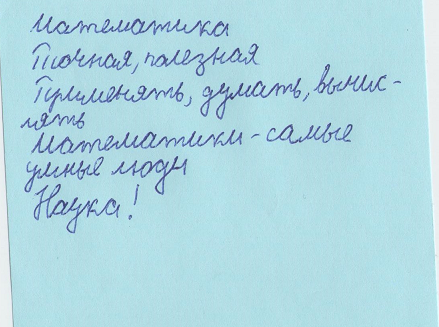 Математика
Точная, полезная
Применять, думать, вычис-
лять
Математики - самые
умные люди
Наука!